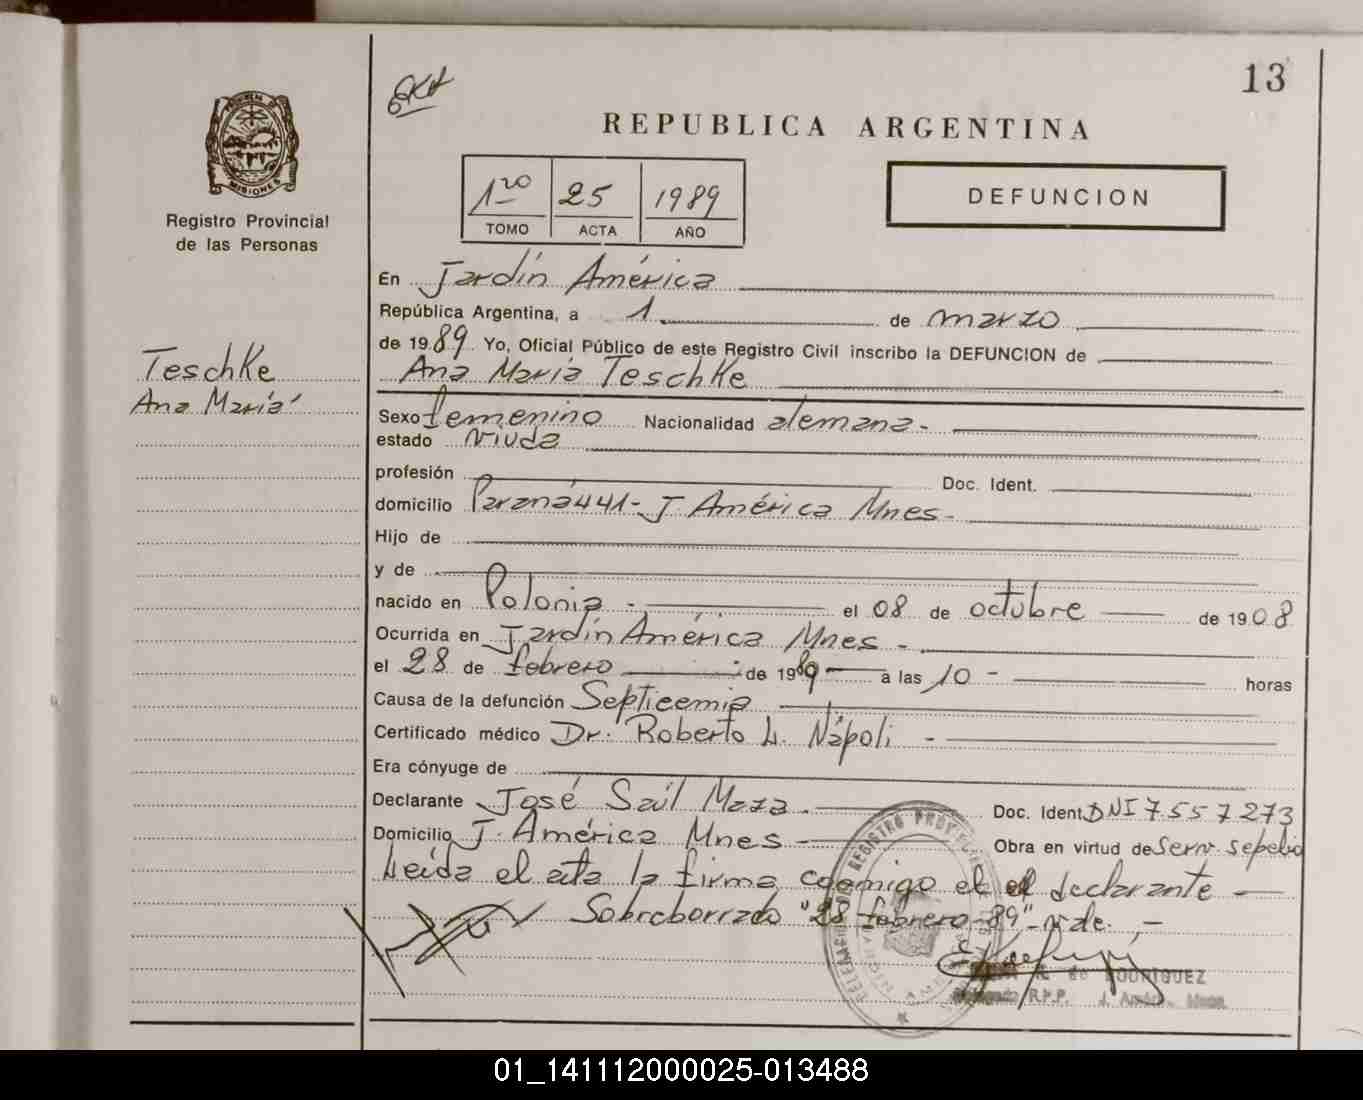 13
REPUBLICA ARGENTINA
MISIONES
Registro Provincial
de las Personas
1ro 25 1989
TOMO ACTA AÑO
DEFUNCION
Teschke
Ana María
En Jardín América
República Argentina, a 1 de marzo
de 1989 Yo, Oficial Público de este Registro Civil inscribo la DEFUNCION de
Ana María Teschke
Sexo femenino Nacionalidad alemana -
estado viuda
profesión Doc. Ident.
domicilio Paraná 441 - J. América Mnes -
Hijo de
y de
nacido en Polonia - el 08 de octubre de 1908
Ocurrida en Jardín América Mnes -
el 28 de febrero de 1989 a las 10 - horas
Causa de la defunción Septicemia
Certificado médico Dr. Roberto L. Nápoli -
Era cónyuge de
Declarante José Saúl Maza. Doc. Ident. DNI 7557273
Domicilio J. América Mnes Obra en virtud de Serv. sepelio
Leída el acta la firma conmigo el declarante -
Sobreborrado "28 febrero-89" vale. -
de RODRIGUEZ
R.P.P.
01_141112000025-013488